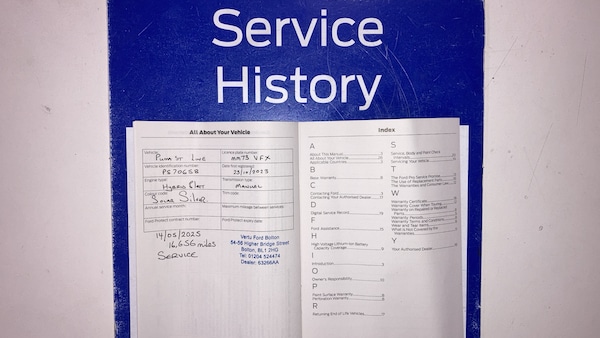 Service
History
All About Your Vehicle
Vehicle:
Puma ST Line
Licence plate number:
MM73 VFX
Vehicle identification number:
PS70658
Date first registered:
23/10/2023
Engine type:
Hybrid
Transmission type:
Manual
Colour code:
Solar Silver
Trim code:
Annual service month:
Maximum mileage between services:
Ford Protect contract number:
Ford Protect expiry date:
14/05/2025
16,656 miles
Service
Vertu Ford Bolton
54-56 Higher Bridge Street
Bolton, BL1 2HG
Tel: 01204 524474
Dealer: 63266AA
Index
A
About This Manual
All About Your Vehicle
Applicable Countries
B
Basic Warranty
C
Contacting Ford
Contacting Your Authorised Dealer
D
Digital Service Record
F
Ford Assistance
H
High Voltage Lithium-Ion Battery
Capacity Coverage
I
Introduction
O
Owner's Responsibility
P
Paint Surface Warranty
Perforation Warranty
R
Returning End of Life Vehicles
S
Service, Body and Paint Check
Intervals
Servicing Your Vehicle
T
The Ford Pro Service Promise
The Use of Replacement Parts
The Warranties and Consumer Law
W
Warranty Certificate
Warranty Cover When Towing
Warranty on Repaired or Replaced
Parts
Warranty Periods
Warranty Terms and Conditions
Wear and Tear Items
What is Not Covered by the
Warranties
Y
Your Authorised Dealer